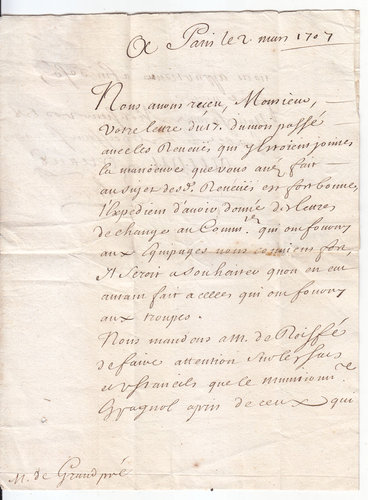 A Paris le 2. mars 1707
Nous avons receu, Monsieur,
Votre lettre du 17. du mois passé
avec les Reveües qui y étoient jointes
la manœuvre que vous avez fait
au sujet des d. Reveües est fort bonne,
l'Expedient d'avoir donné des lettres
de changes au Comm.re qui ont fourny
aux Equipages nous convient fort,
Il seroit a souhaiter qu'on en eut
autant fait a celles qui ont fourny
aux troupes.
Nous mandons a M. de Roissé
de faire attention sur les
et que le munition.re
Espagnol a pris de ceux qui
M. de Grandpré